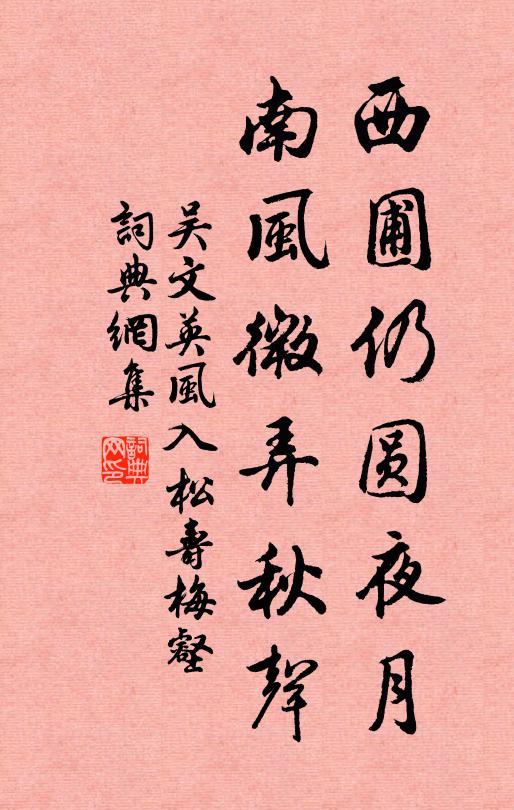 西圃仍圓夜月
南風微弄秋聲
吳文英風入松壽梅壑
詞典網集
詞典網印